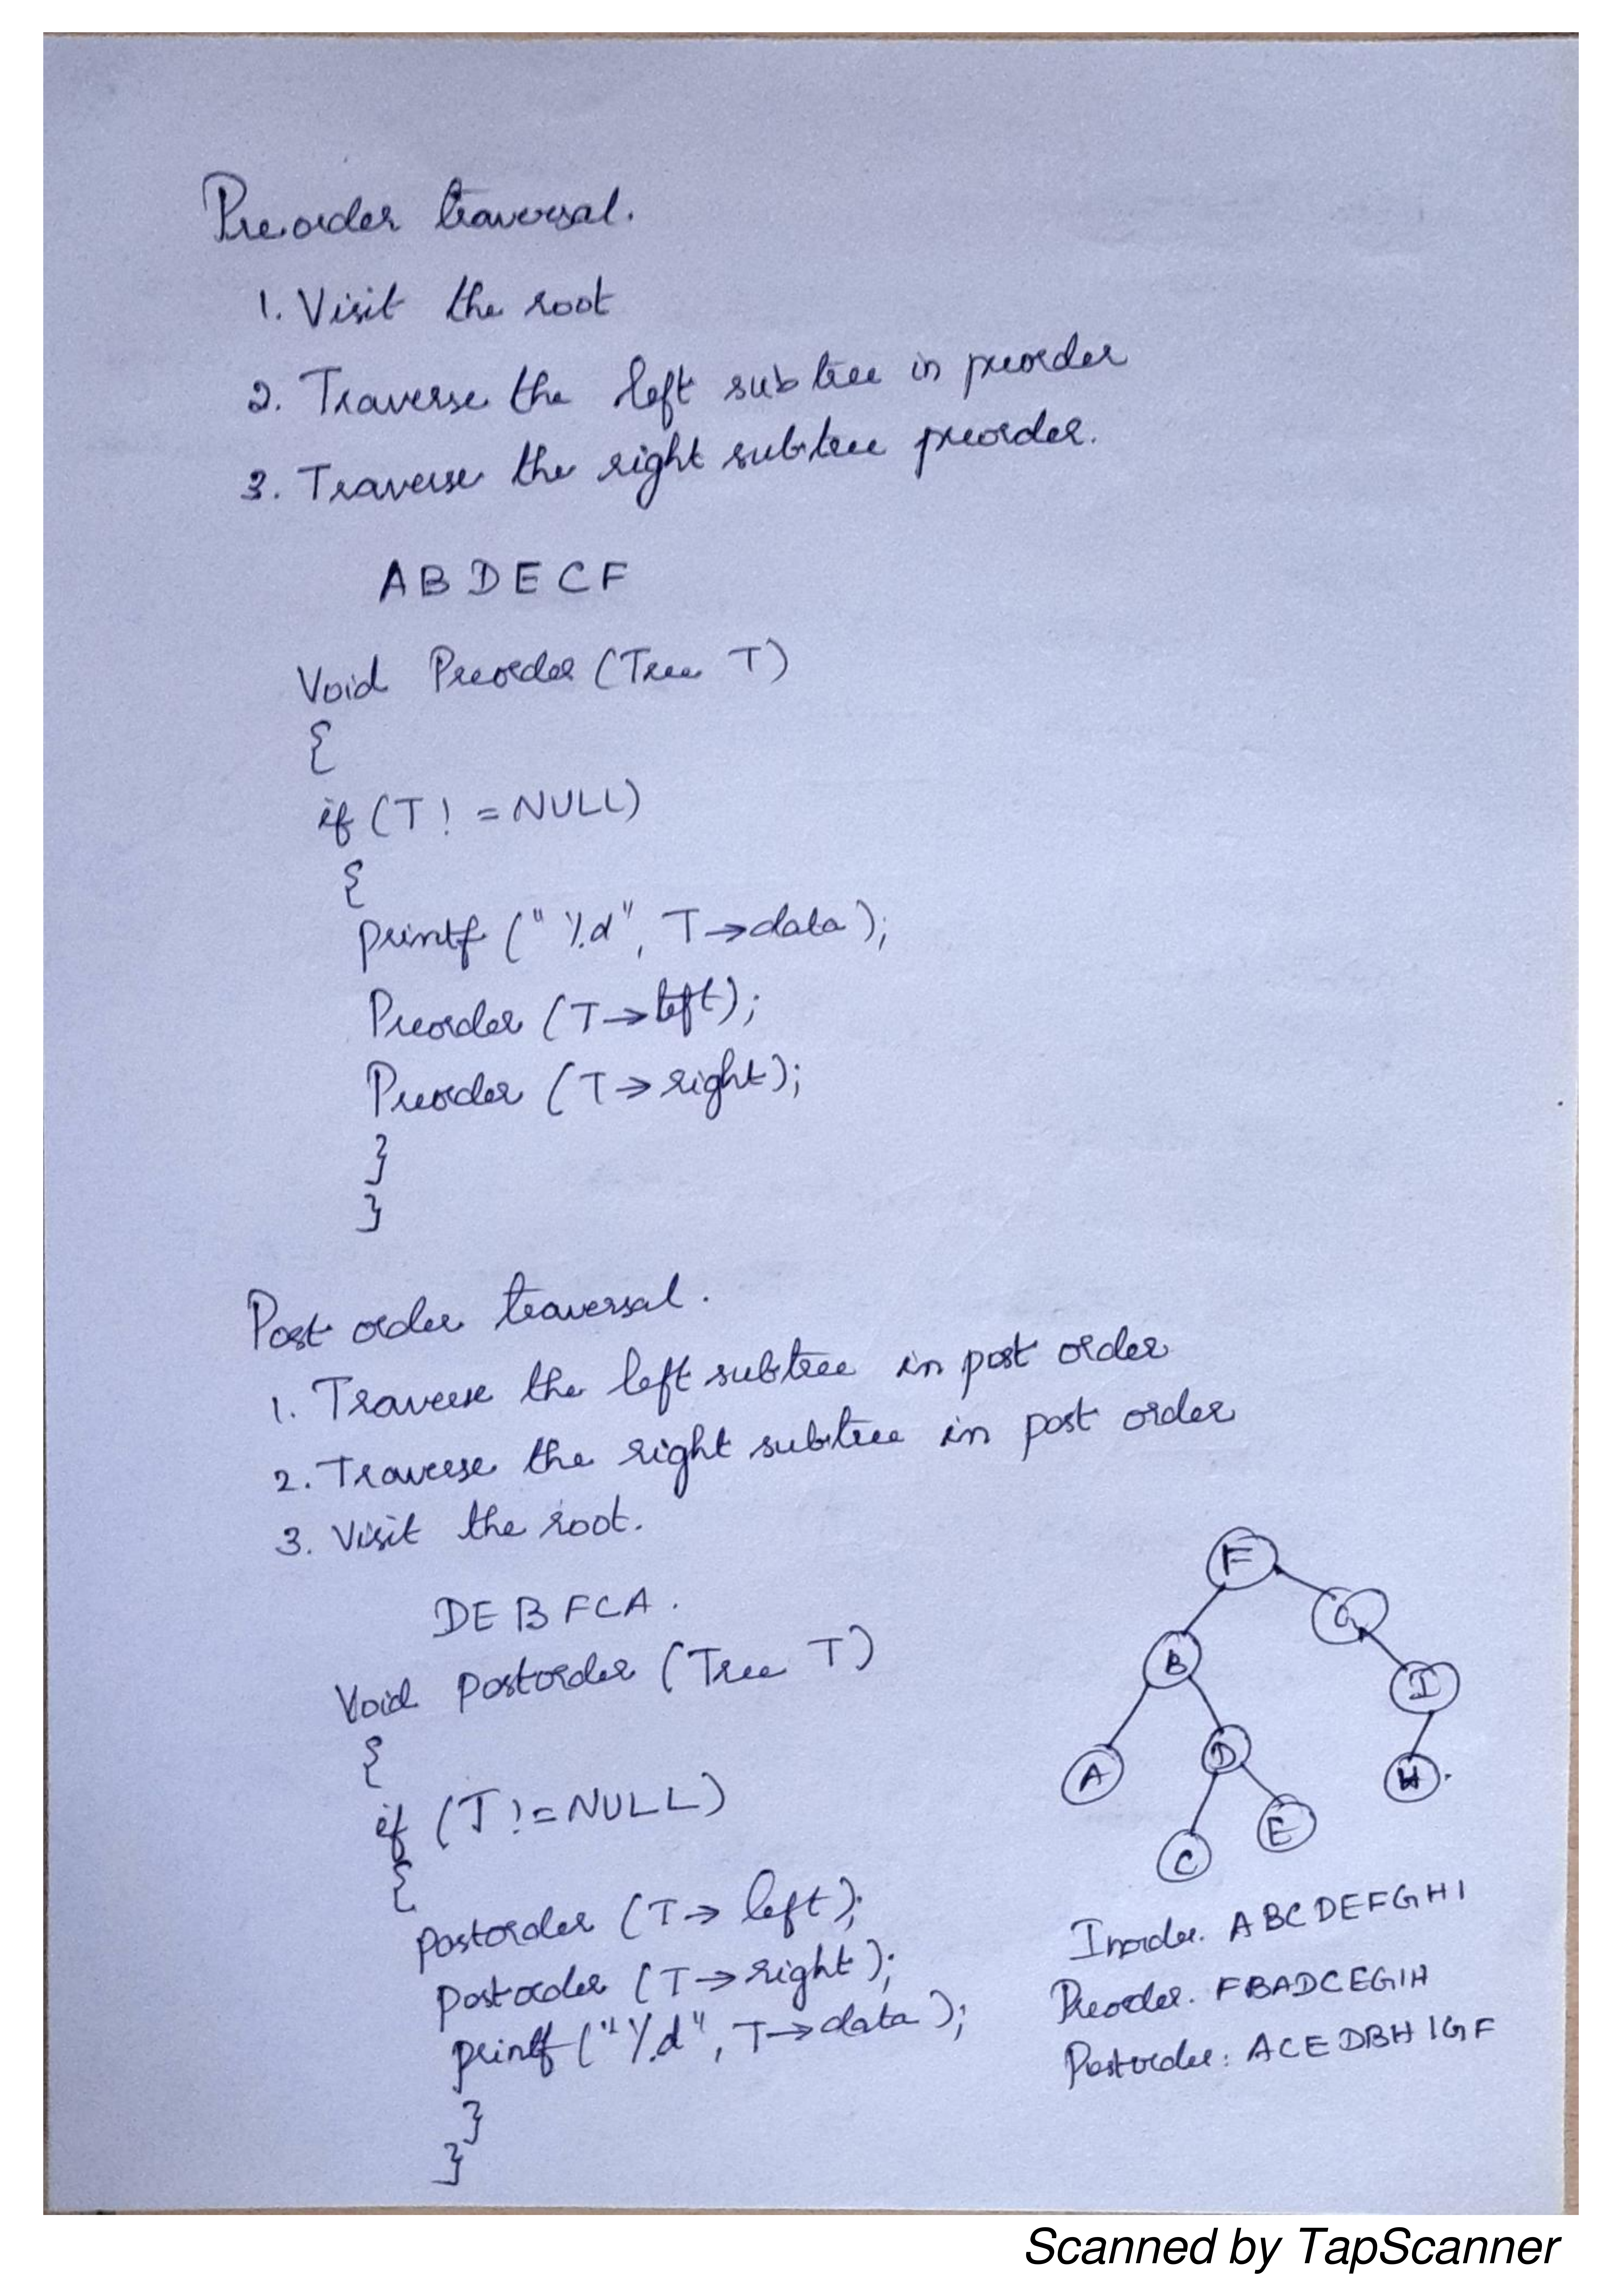 Preorder traversal.
1. Visit the root
2. Traverse the left subtree in preorder
3. Traverse the right subtree preorder.
A B D E C F
Void Preorder (Tree T)
{
if (T! = NULL)
{
printf ("%d", T→data);
Preorder (T→left);
Preorder (T→right);
}
}
Post order traversal.
1. Traverse the left subtree in post order
2. Traverse the right subtree in post order
3. Visit the root.
DEBFCA.
Void Postorder (Tree T)
{
if (T!=NULL)
{
Postorder (T→left);
Postorder (T→right);
printf ("%d", T→data);
}
}
F
G
B
I
A
D
H
C
E
Inorder. ABCDEFGHI
Preorder. FBADCEGIH
Postorder: ACEDBHIGF
Scanned by TapScanner